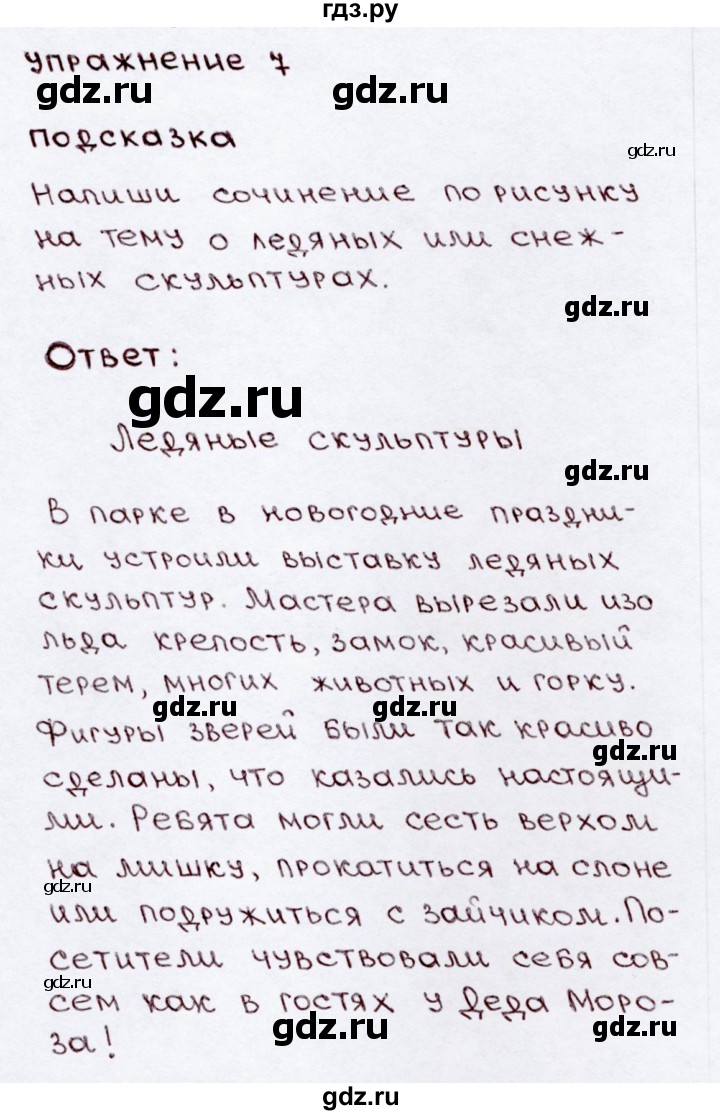 гдз.ру
упражнение 7
gdz.ru gdz.ru
подсказка
gdz.ru
Напиши сочинение по рисунку
на тему о ледяных или снеж-
ных скульптурах.
gdz.ru
Ответ:
gdz.ru
Ледяные скульптуры
gdz.ru
В парке в новогодние праздни-
ки устроили выставку ледяных
скульптур. Мастера вырезали изо
льда крепость, замок, красивый
терем, многих животных и горку.
gdz.ru gdz.ru
Фигуры зверей были так красиво
gdz.ru
сделаны, что казались настоящи-
ми. Ребята могли сесть верхом
на мишку, прокатиться на слоне
gdz.ru
или подружиться с зайчиком. По-
сетители чувствовали себя сов-
gdz.ru
сем как в гостях у Деда Моро-
gdz.ru gdz.ru
за!
gdz.ru